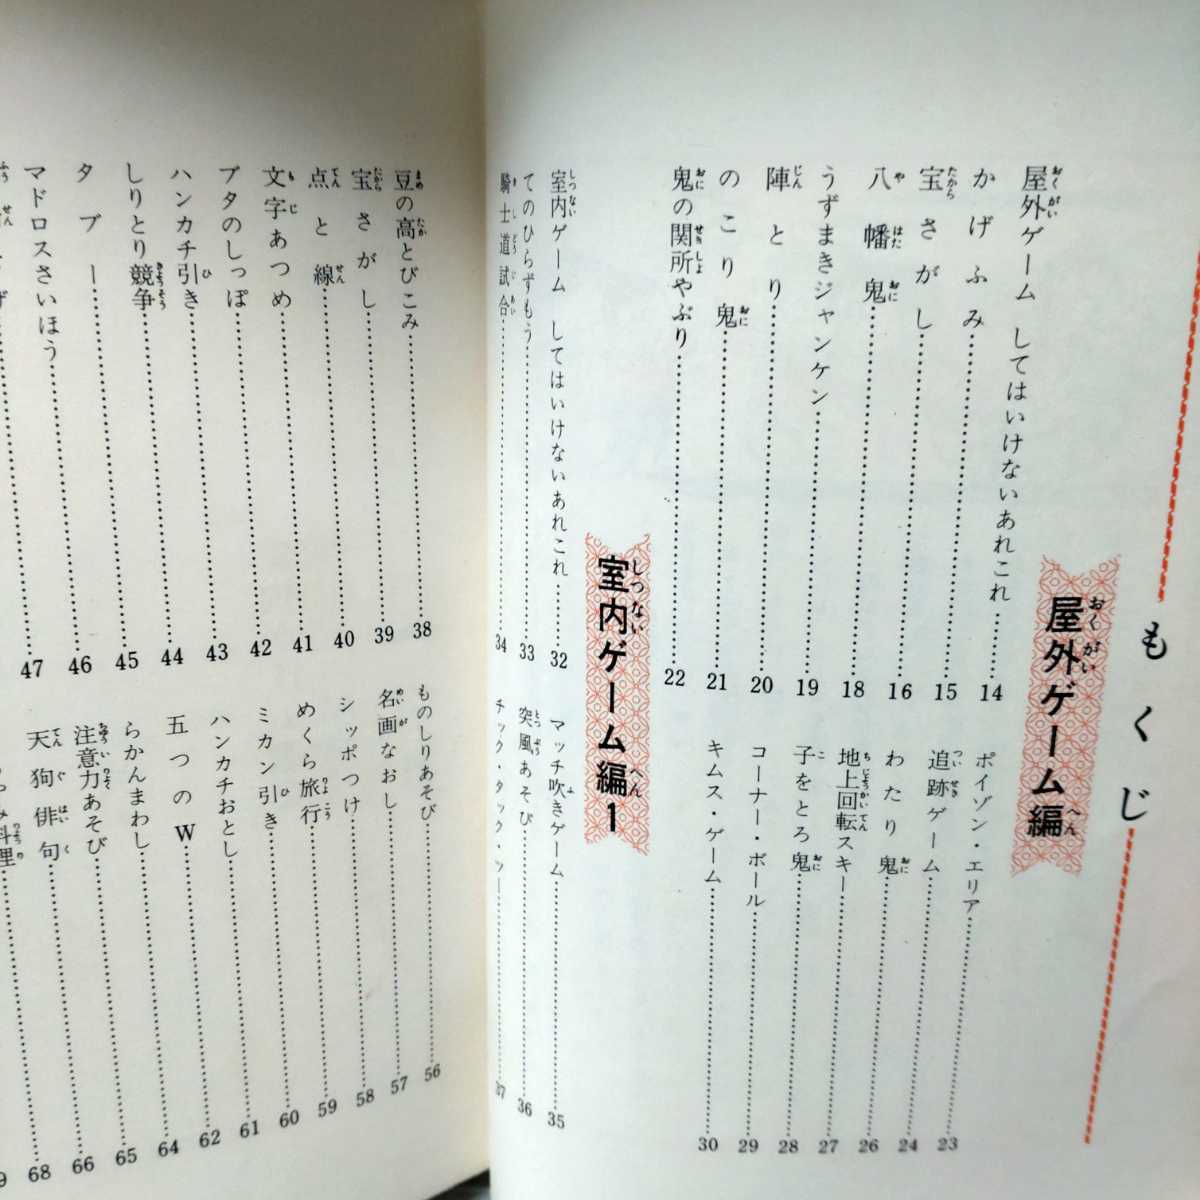 もくじ
屋外ゲーム編
屋外ゲーム してはいけないあれこれ……14
かげふみ……15
宝さがし……16
八幡鬼……18
うずまきジャンケン……19
陣とり……20
のこり鬼……21
鬼の関所やぶり……22
ポイゾン・エリア……23
追跡ゲーム……24
わたり鬼……26
地上回転スキー……27
子をとろ鬼……28
コーナー・ボール……29
キムス・ゲーム……30
室内ゲーム編1
室内ゲーム してはいけないあれこれ……32
てのひらずもう……33
騎士道試合……34
マッチ吹きゲーム……35
突風あそび……36
チック・タック・ツー……37
豆の高とびこみ……38
宝さがし……39
点と線……40
文字あつめ……41
ブタのしっぽ……42
ハンカチ引き……43
しりとり競争……44
タブー……45
マドロスさいほう……46
47
ものしりあそび……56
名画なおし……57
シッポつけ……58
めくら旅行……59
ミカン引き……60
ハンカチおとし……61
五つのW……62
らかんまわし……64
注意力あそび……65
天狗俳句……66
料理……68